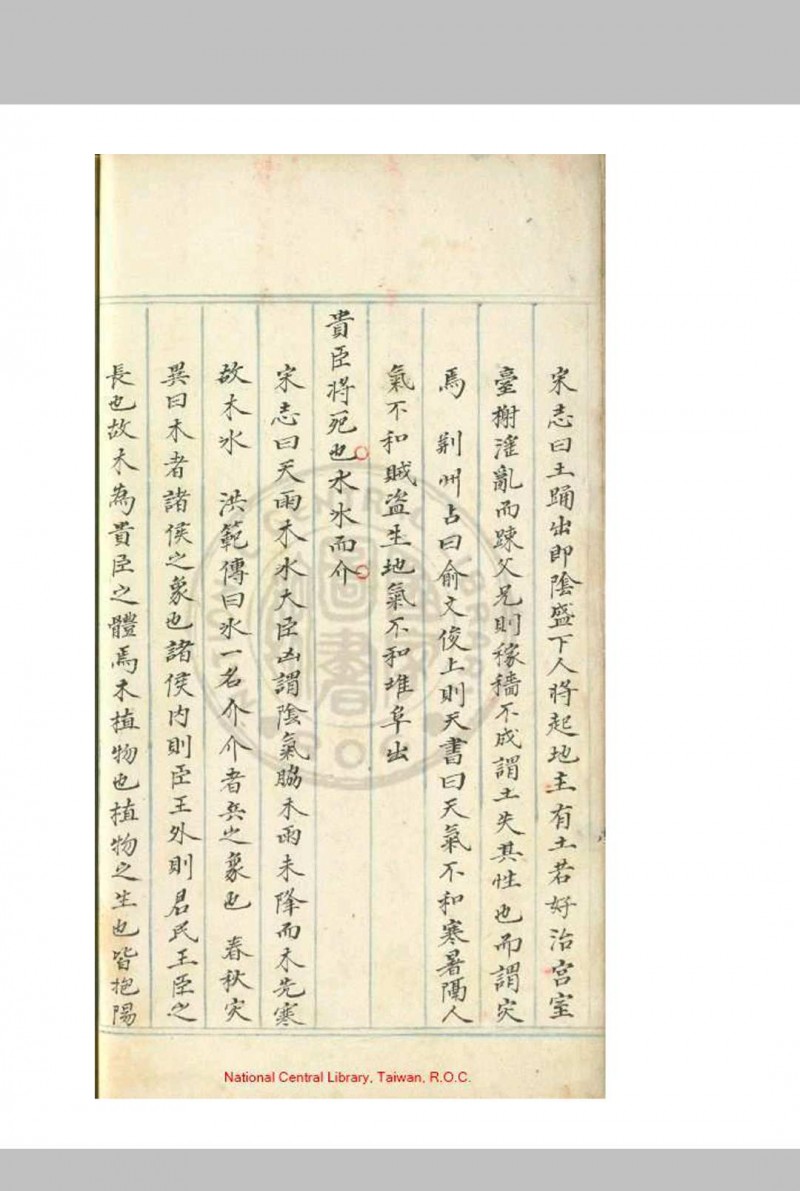 宋志曰土踊出即陰盛下人將起地主有土若好治宮室
臺榭滛亂而踈父兄則稼穡不成謂土失其性也而謂灾
焉　荆州占曰俞文俊上則天書曰天氣不和寒暑隔人
氣不和賊盗生地氣不和堆阜出
貴臣將死也木氷而介
宋志曰天雨木氷大臣凶謂陰氣脇木雨未降而木先寒
故木氷　洪範傳曰氷一名介介者兵之象也　春秋灾
異曰木者諸侯之象也諸侯内則臣王外則君民王臣之
長也故木為貴臣之體焉木植物也植物之生也皆抱陽
National Central Library, Taiwan, R.O.C.